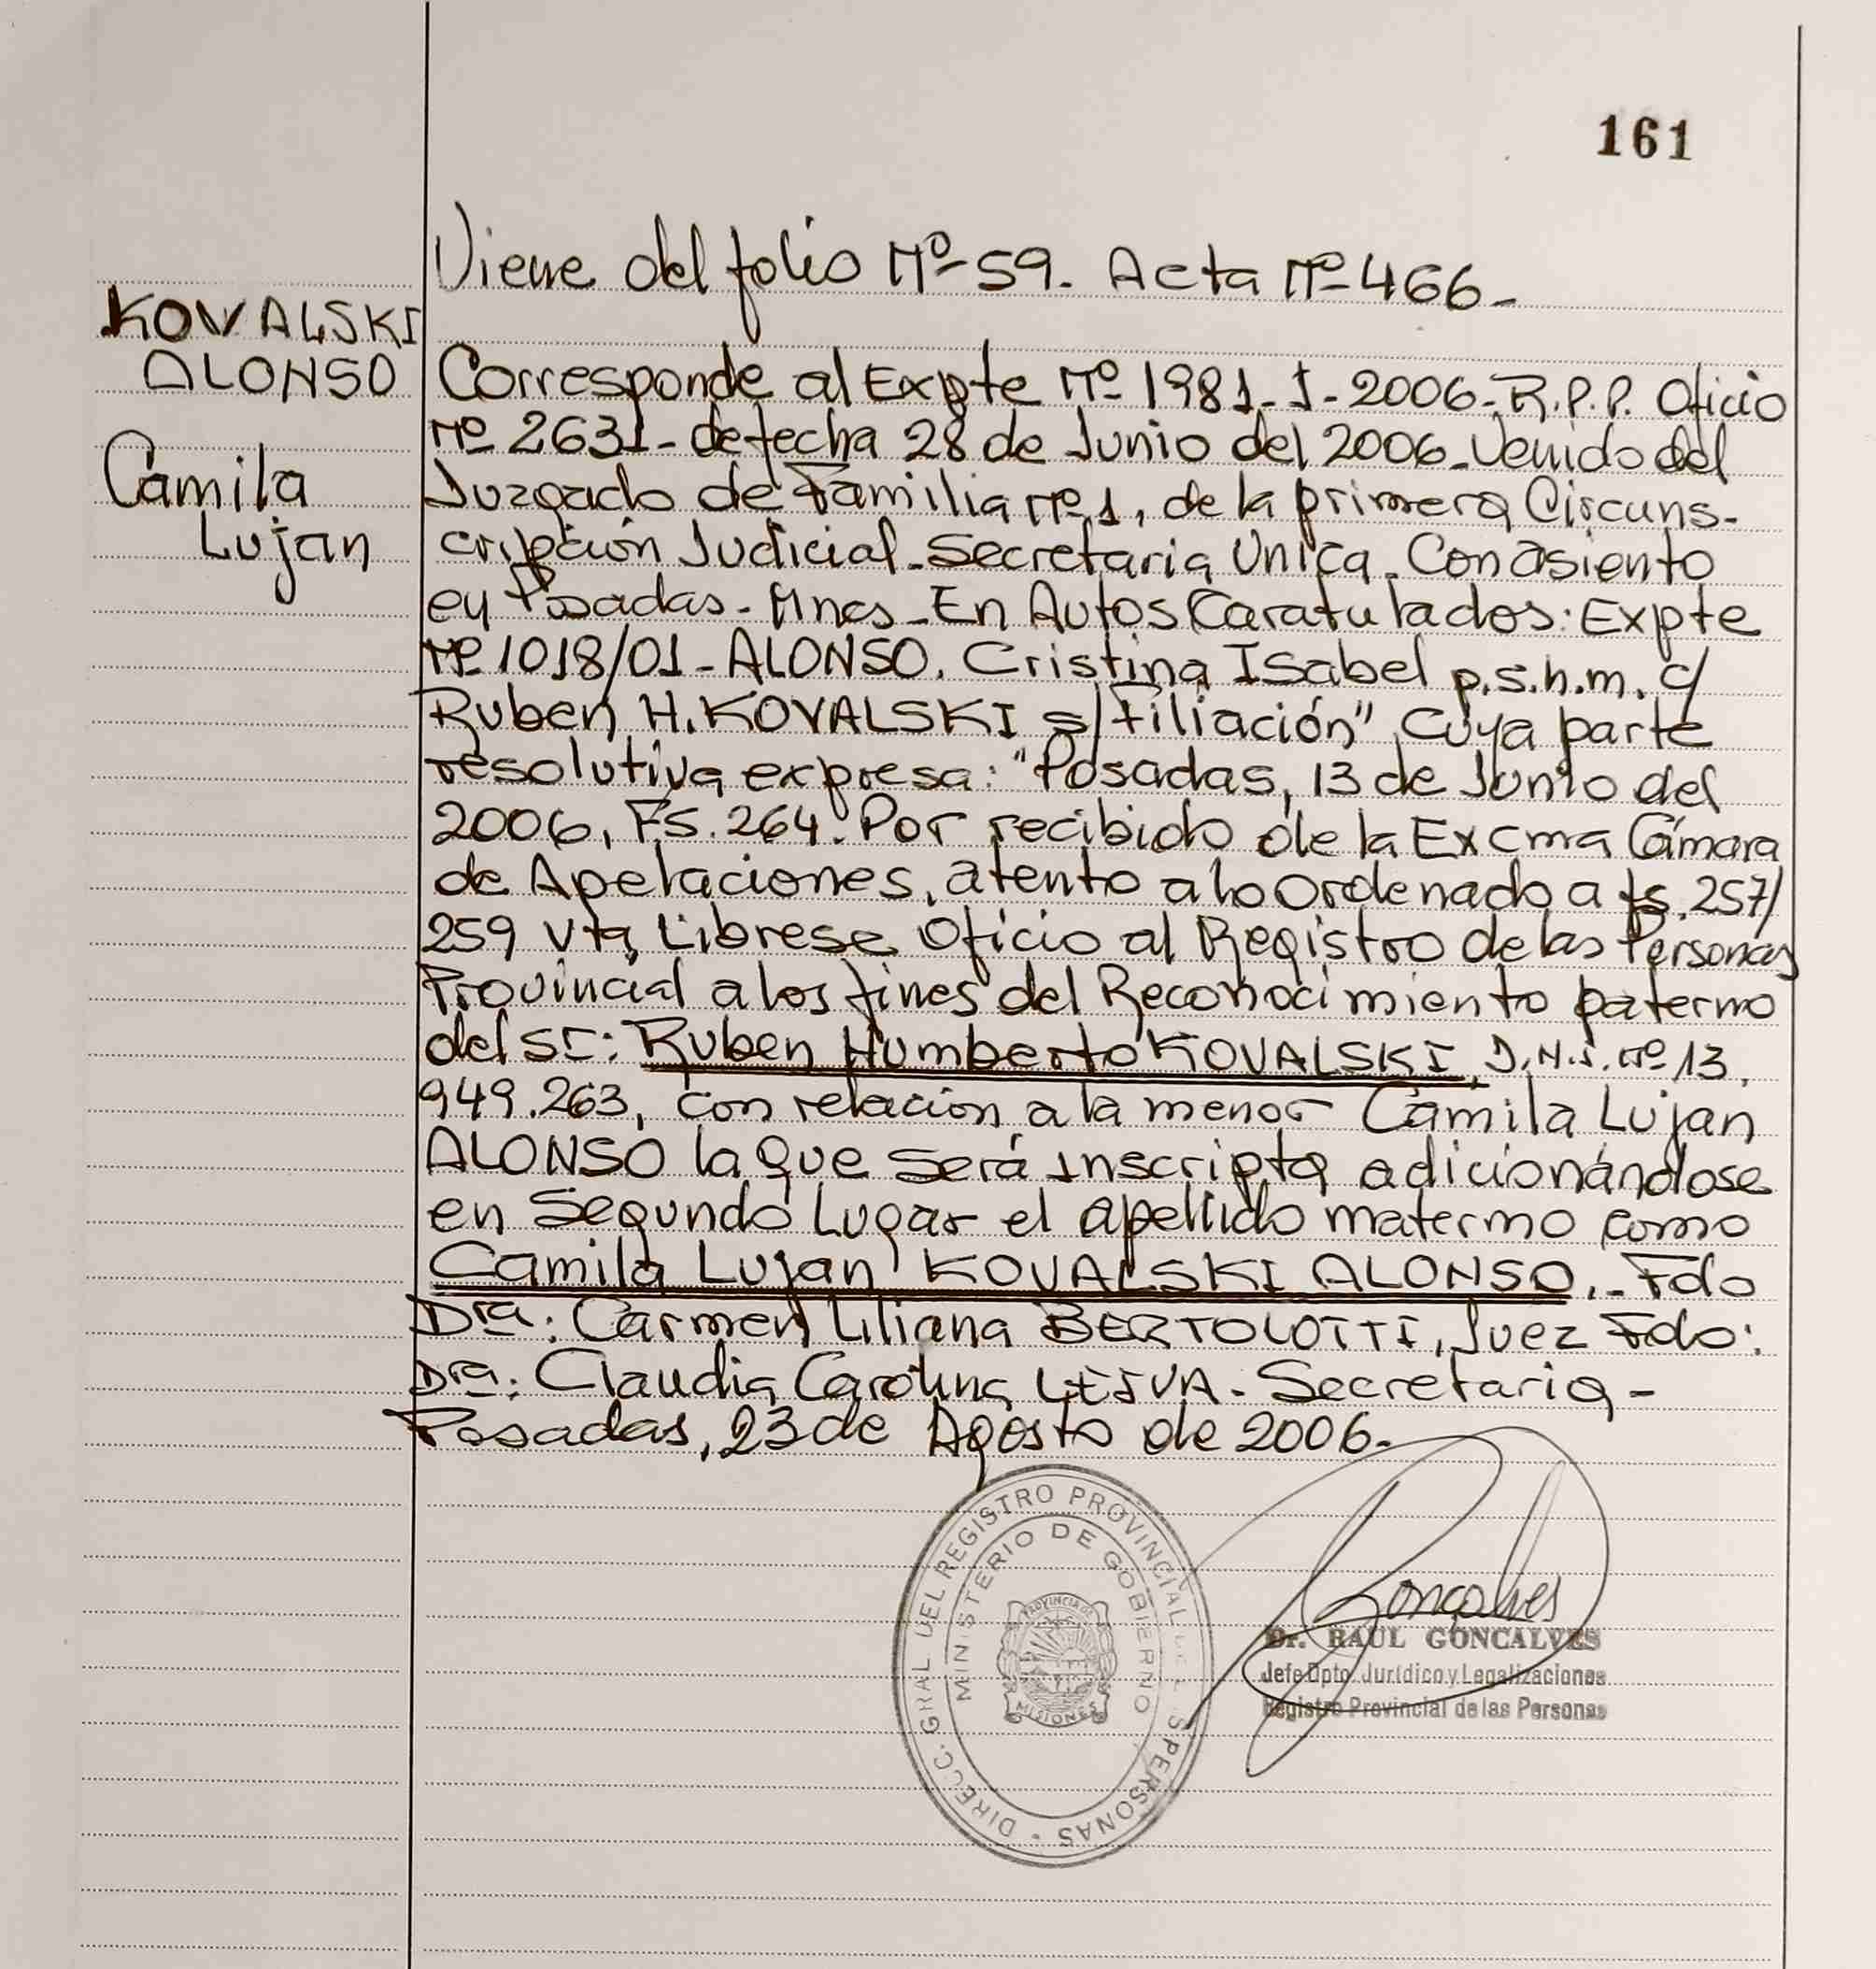 161
Viene del folio Nº 59. Acta Nº 466-
KOVALSKI
ALONSO
Camila
Lujan
Corresponde al Expte Nº 1981-J-2006-R.P.P. Oficio
Nº 2631- de fecha 28 de Junio del 2006-Venido del
Juzgado de Familia Nº1, de la primera Circuns-
cripción Judicial-Secretaria Unica. Con asiento
en Posadas-Mnes-En Autos Caratulados: Expte
Nº 1018/01-ALONSO. Cristina Isabel p.s.h.m. c/
Ruben H. KOVALSKI s/Filiación" cuya parte
resolutiva expresa: "Posadas, 13 de Junio del
2006, Fs. 264. Por recibido de la Excma Cámara
de Apelaciones, atento a lo Ordenado a fs. 257/
259 vta, Librese Oficio al Registro de las Personas
Provincial a los fines del Reconocimiento paterno
del sr: Ruben Humberto KOVALSKI, D.N.I. Nº 13.
949.263, con relacion a la menor Camila Lujan
ALONSO la que será inscripta adicionándose
en Segundo Lugar el apellido materno como
Camila Lujan KOVALSKI ALONSO.- Fdo
Dra: Carmen Liliana BERTOLOTTI, Juez Fdo:
Dra: Claudia Carolina LEIVA-Secretaria-
Posadas, 23 de Agosto de 2006-
DIRECC. GRAL DEL REGISTRO PROVINCIAL DE LAS PERSONAS -
MINISTERIO DE GOBIERNO
PROVINCIA DE
MISIONES
Gonçalves
Dr. RAUL GONCALVES
Jefe Dpto. Jurídico y Legalizaciones
Registro Provincial de las Personas